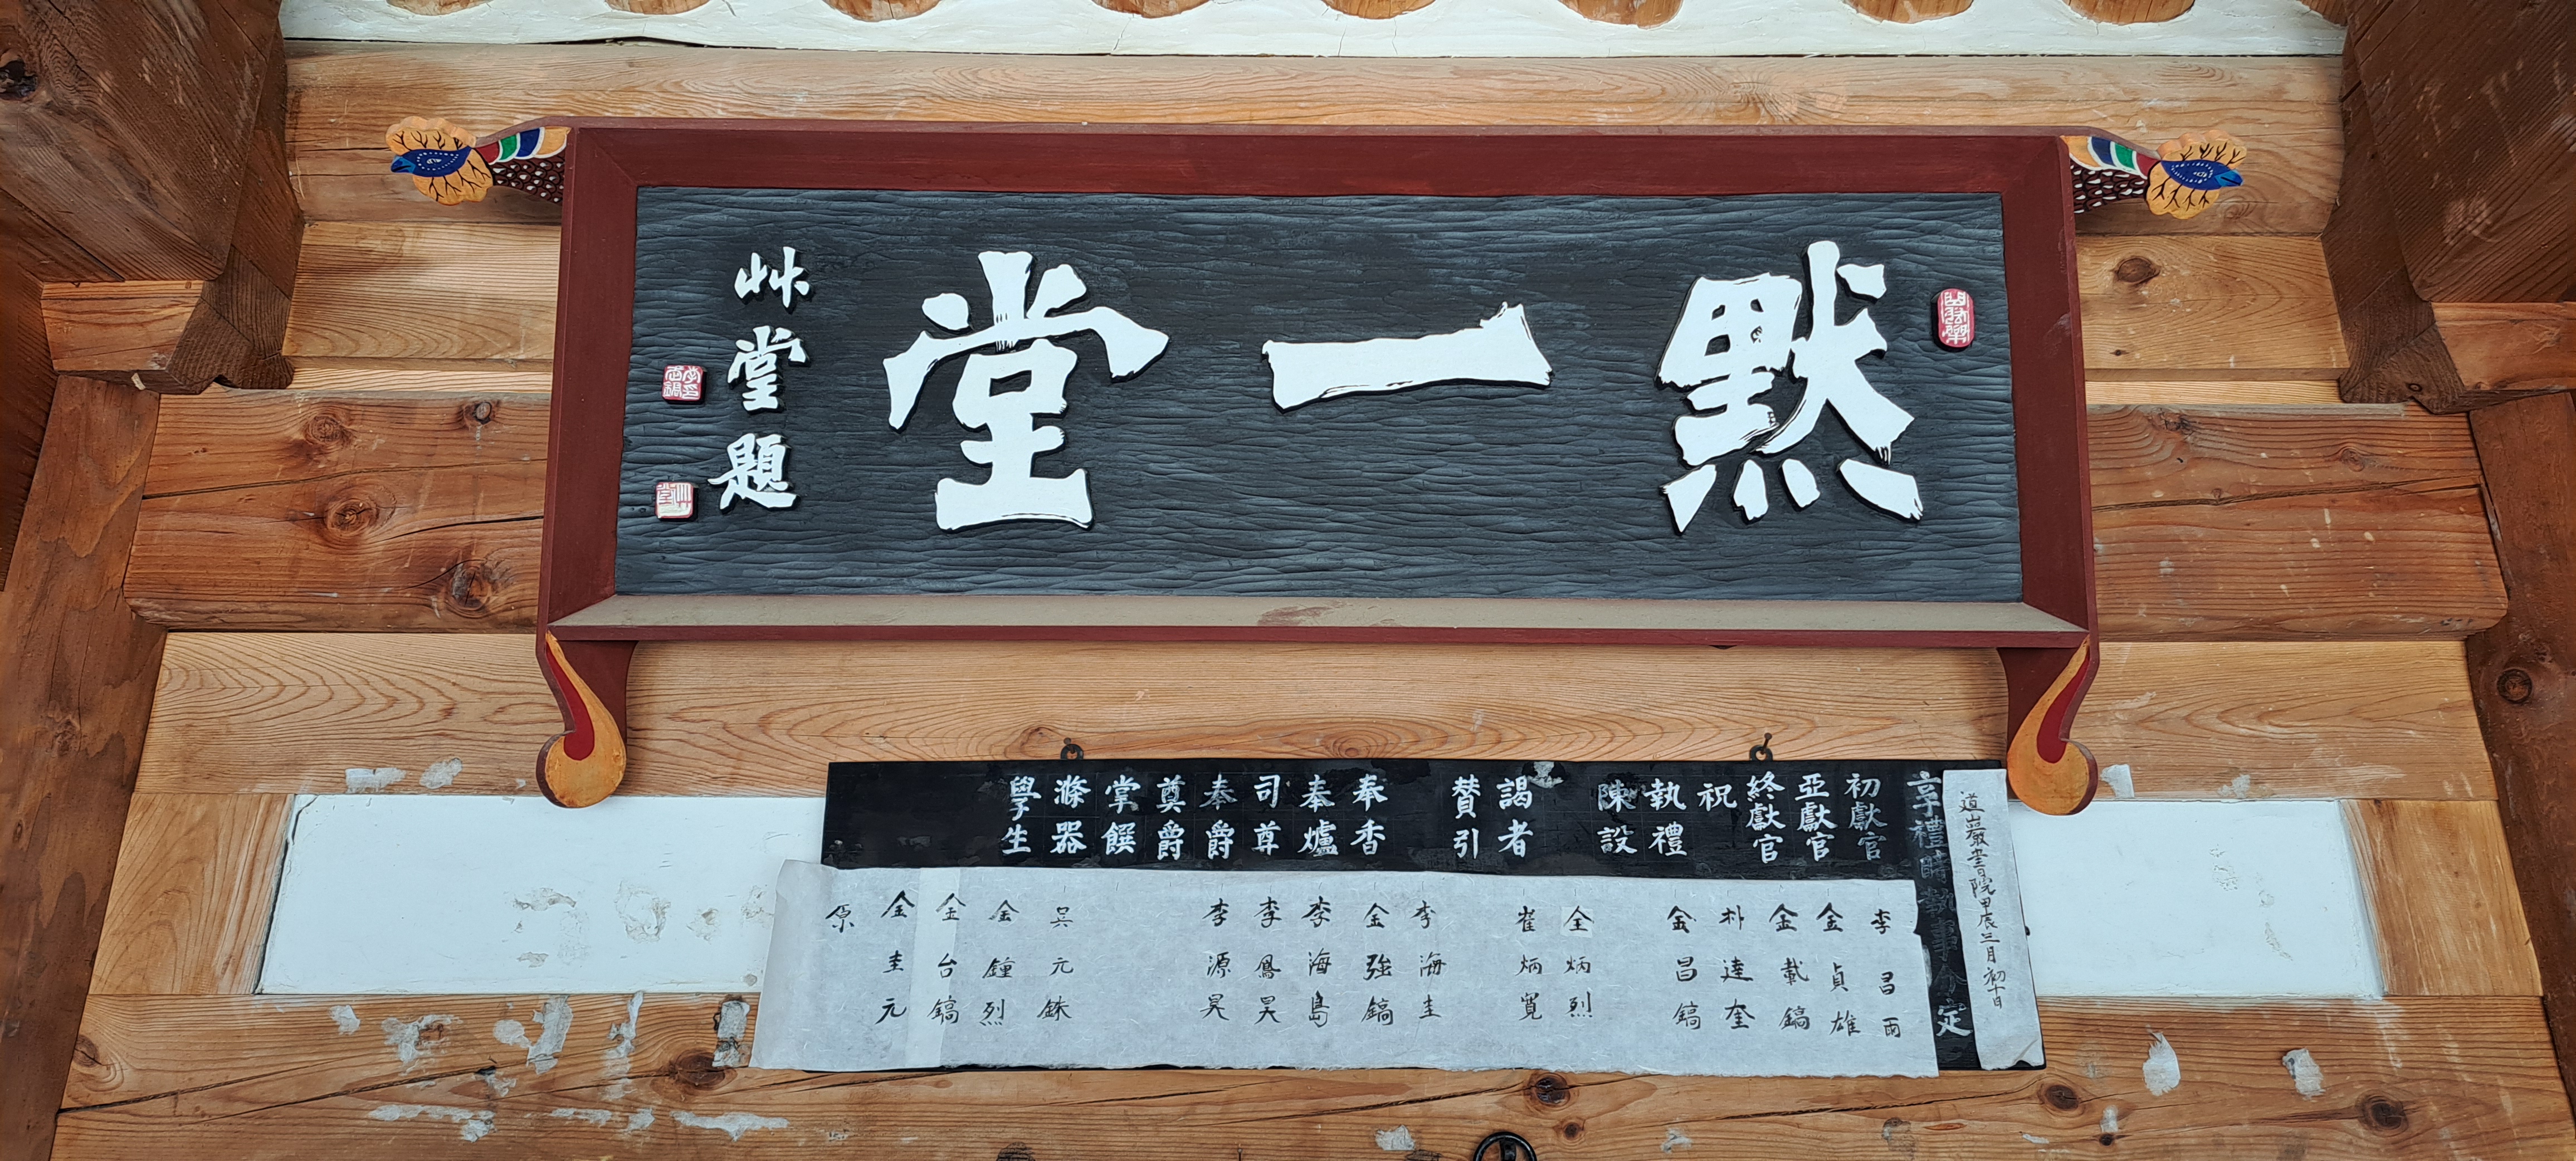 默一堂
艸堂題
道巖書院甲辰三月初十日
享禮時執事分定
初獻官
亞獻官
終獻官
祝
執禮
陳設
謁者
贊引
奉香
奉爐
司尊
奉爵
奠爵
掌饌
滌器
學生
李昌雨
金貞雄
金載鎬
朴達奎
金昌鎬
全炳烈
崔炳寬
李海圭
金強鎬
李海島
李鳳昊
李源昊
吳元銖
金鐘烈
金台鎬
金圭元
原